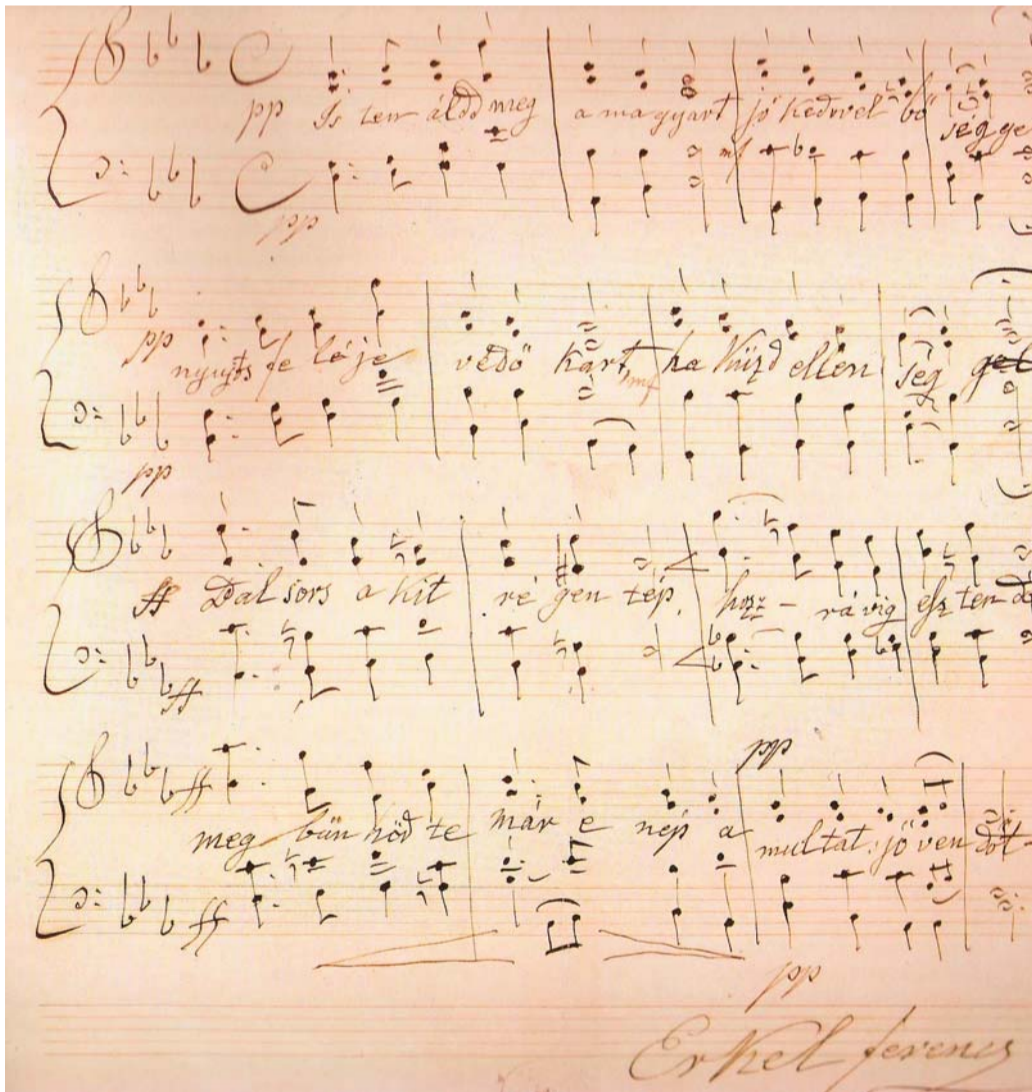 pp Is ten áldd meg a magyart jó Kedvel bő ség ge
mf
pp
pp nyujts fe léje védő Kart, mf ha Küzd ellen ség gel
pp
ff Bal sors a Kit ré gen tép, hozz - rá vig esz ten dő
ff
pp
ff meg bűn hőd te már e nép a multat jö ven dőt -
ff
pp
Erkel ferencz